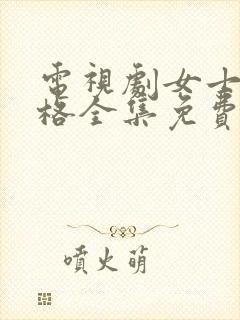 電視劇女士
格全集免費
噴火萌